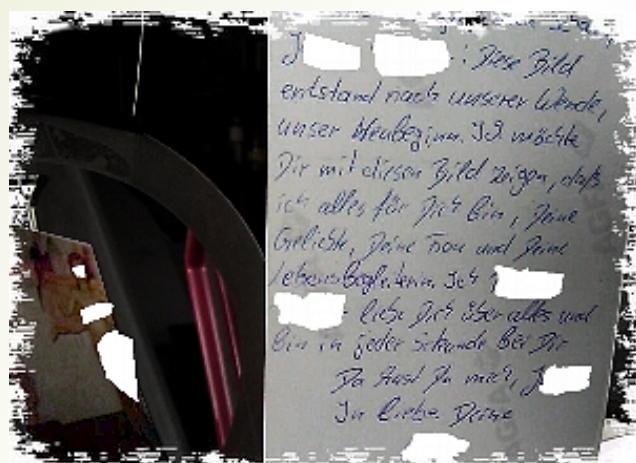 J : Diese Bild
entstand nach unserer Wende,
unser Neubeginn. Ich möchte
Dir mit diesen Bild zeigen, daß
ich alles für Dich bin, Deine
Geliebte, Deine Frau und Deine
Lebensbegleiterin. Ich
liebe Dich über alles und
bin in jeder sekunde bei Dir
Da hast Du mich, J
In liebe Deine